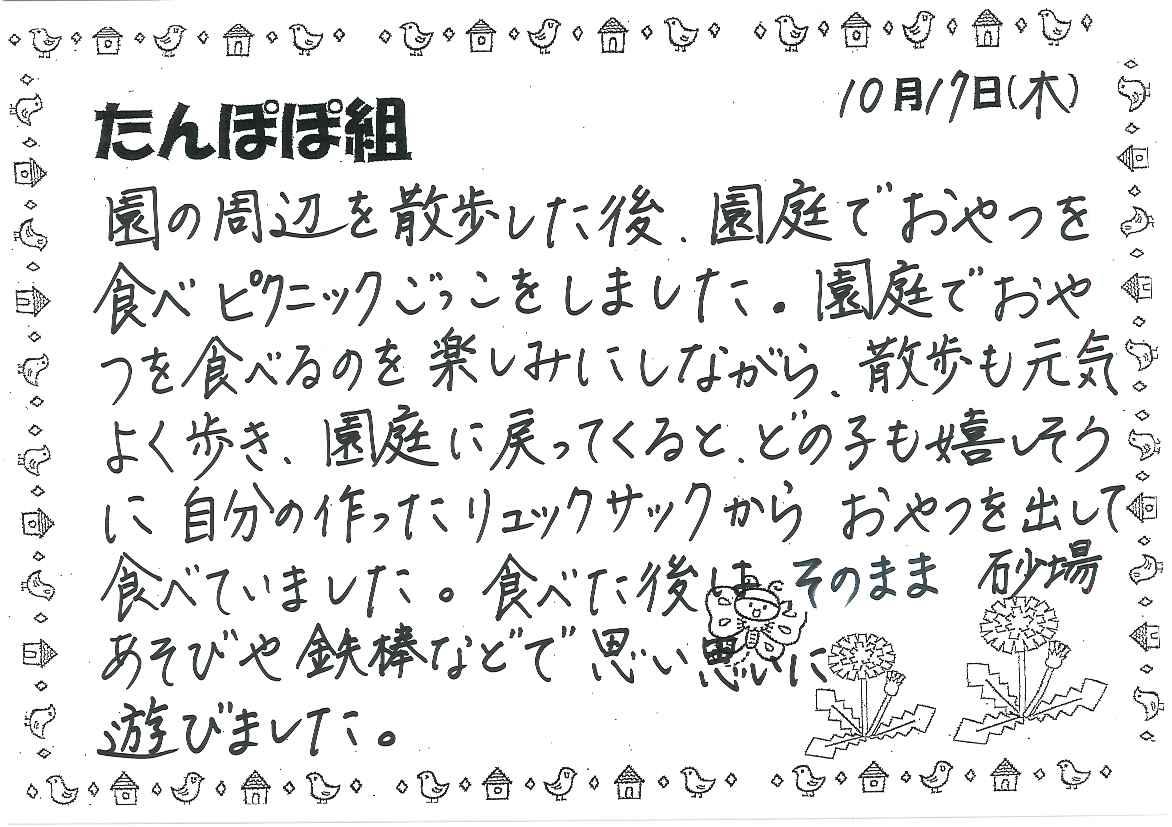 10月17日(木)
たんぽぽ組
園の周辺を散歩した後、園庭でおやつを
食べピクニックごっこをしました。園庭でおや
つを食べるのを楽しみにしながら、散歩も元気
よく歩き、園庭に戻ってくると、どの子も嬉しそう
に自分の作ったリュックサックからおやつを出して
食べていました。食べた後は そのまま 砂場
あそびや鉄棒などで思い思いに
遊びました。